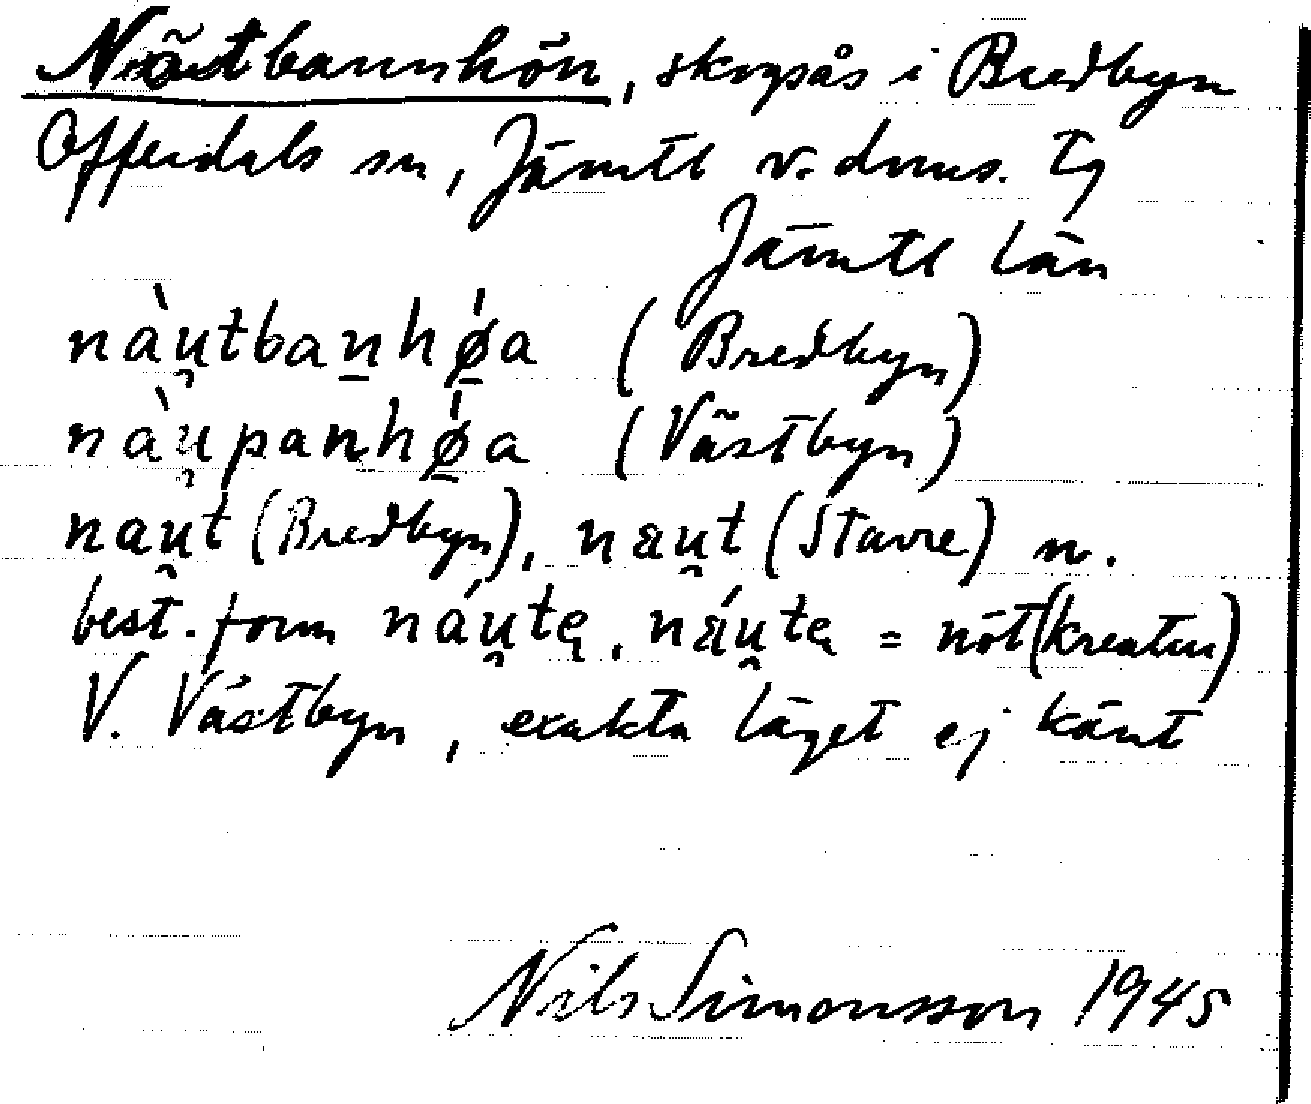 Nöstbannhön, skogsås i Bredbyn
Offerdals sn, Jämtl v. doms. Tg
Jämtl län
nàu̯tban̲hǿ̲a (Bredbyn)
nàu̯panhǿ̲a (Västbyn)
nau̯t (Bredbyn), nau̯t (Stavre) n.
best. form náu̯tę, náu̯tę = nöt (kreatur)
V. Västbyn, exakta läget ej känt
Nils Simonsson 1945